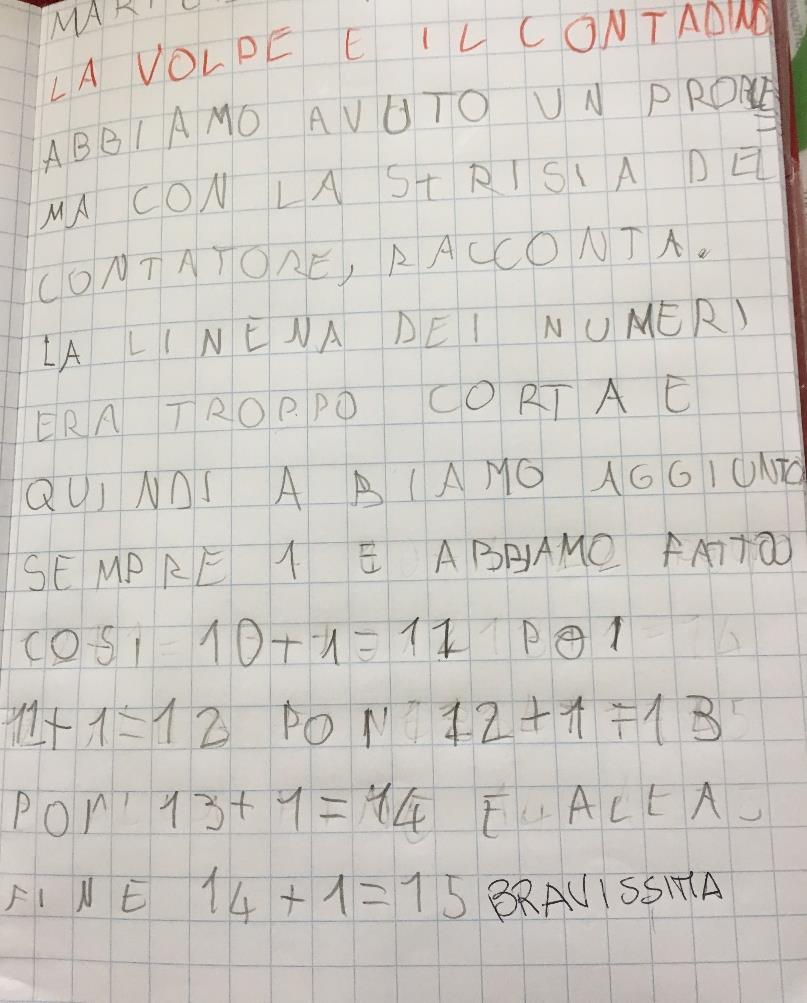 LA VOLPE E IL CONTADINO
ABBIAMO AVUTO UN PROBLE=
MA CON LA STRISIA DEL
CONTATORE, RACCONTA.
LA LINENA DEI NUMERI
ERA TROPPO CORTA E
QUINDI A BIAMO AGGIUNTO
SEMPRE 1 E ABBIAMO FATTO
COSI 10+1=11 POI
11+1=12 POI 12+1=13
POI 13+1=14 E ALLA
FINE 14+1=15 BRAVISSIMA